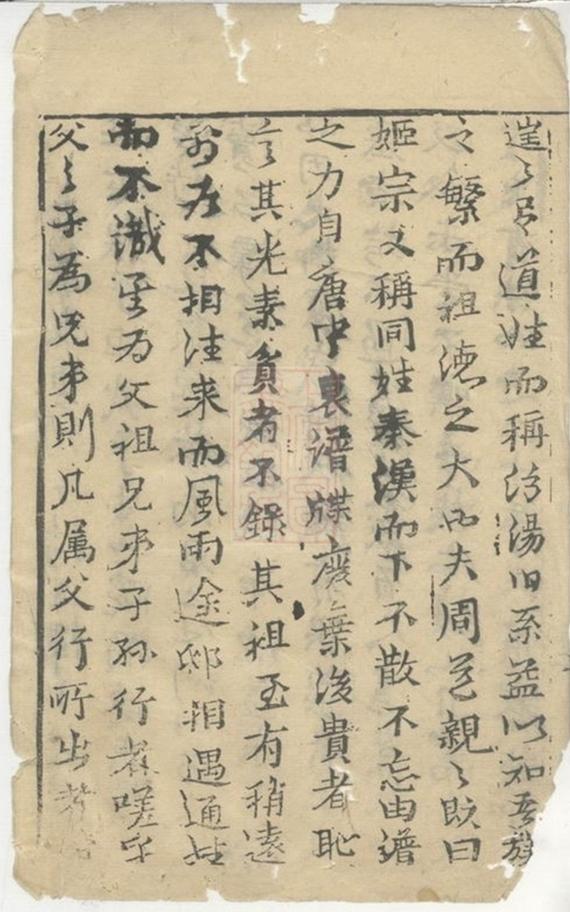 道姓而稱汾湯旧系益以知吾族
之繁而祖德之大也夫周道親〻既曰
姬宗又稱同姓秦漢而下不散不忘由譜
之力自唐中衰譜牒廢棄後貴者恥
言其先素貧者不錄其祖至有稍遠
不相往来而風雨途邸相遇通姓
而不識其为父祖兄弟子孙行者嗟乎
父〻子為兄弟則凡属父行所出